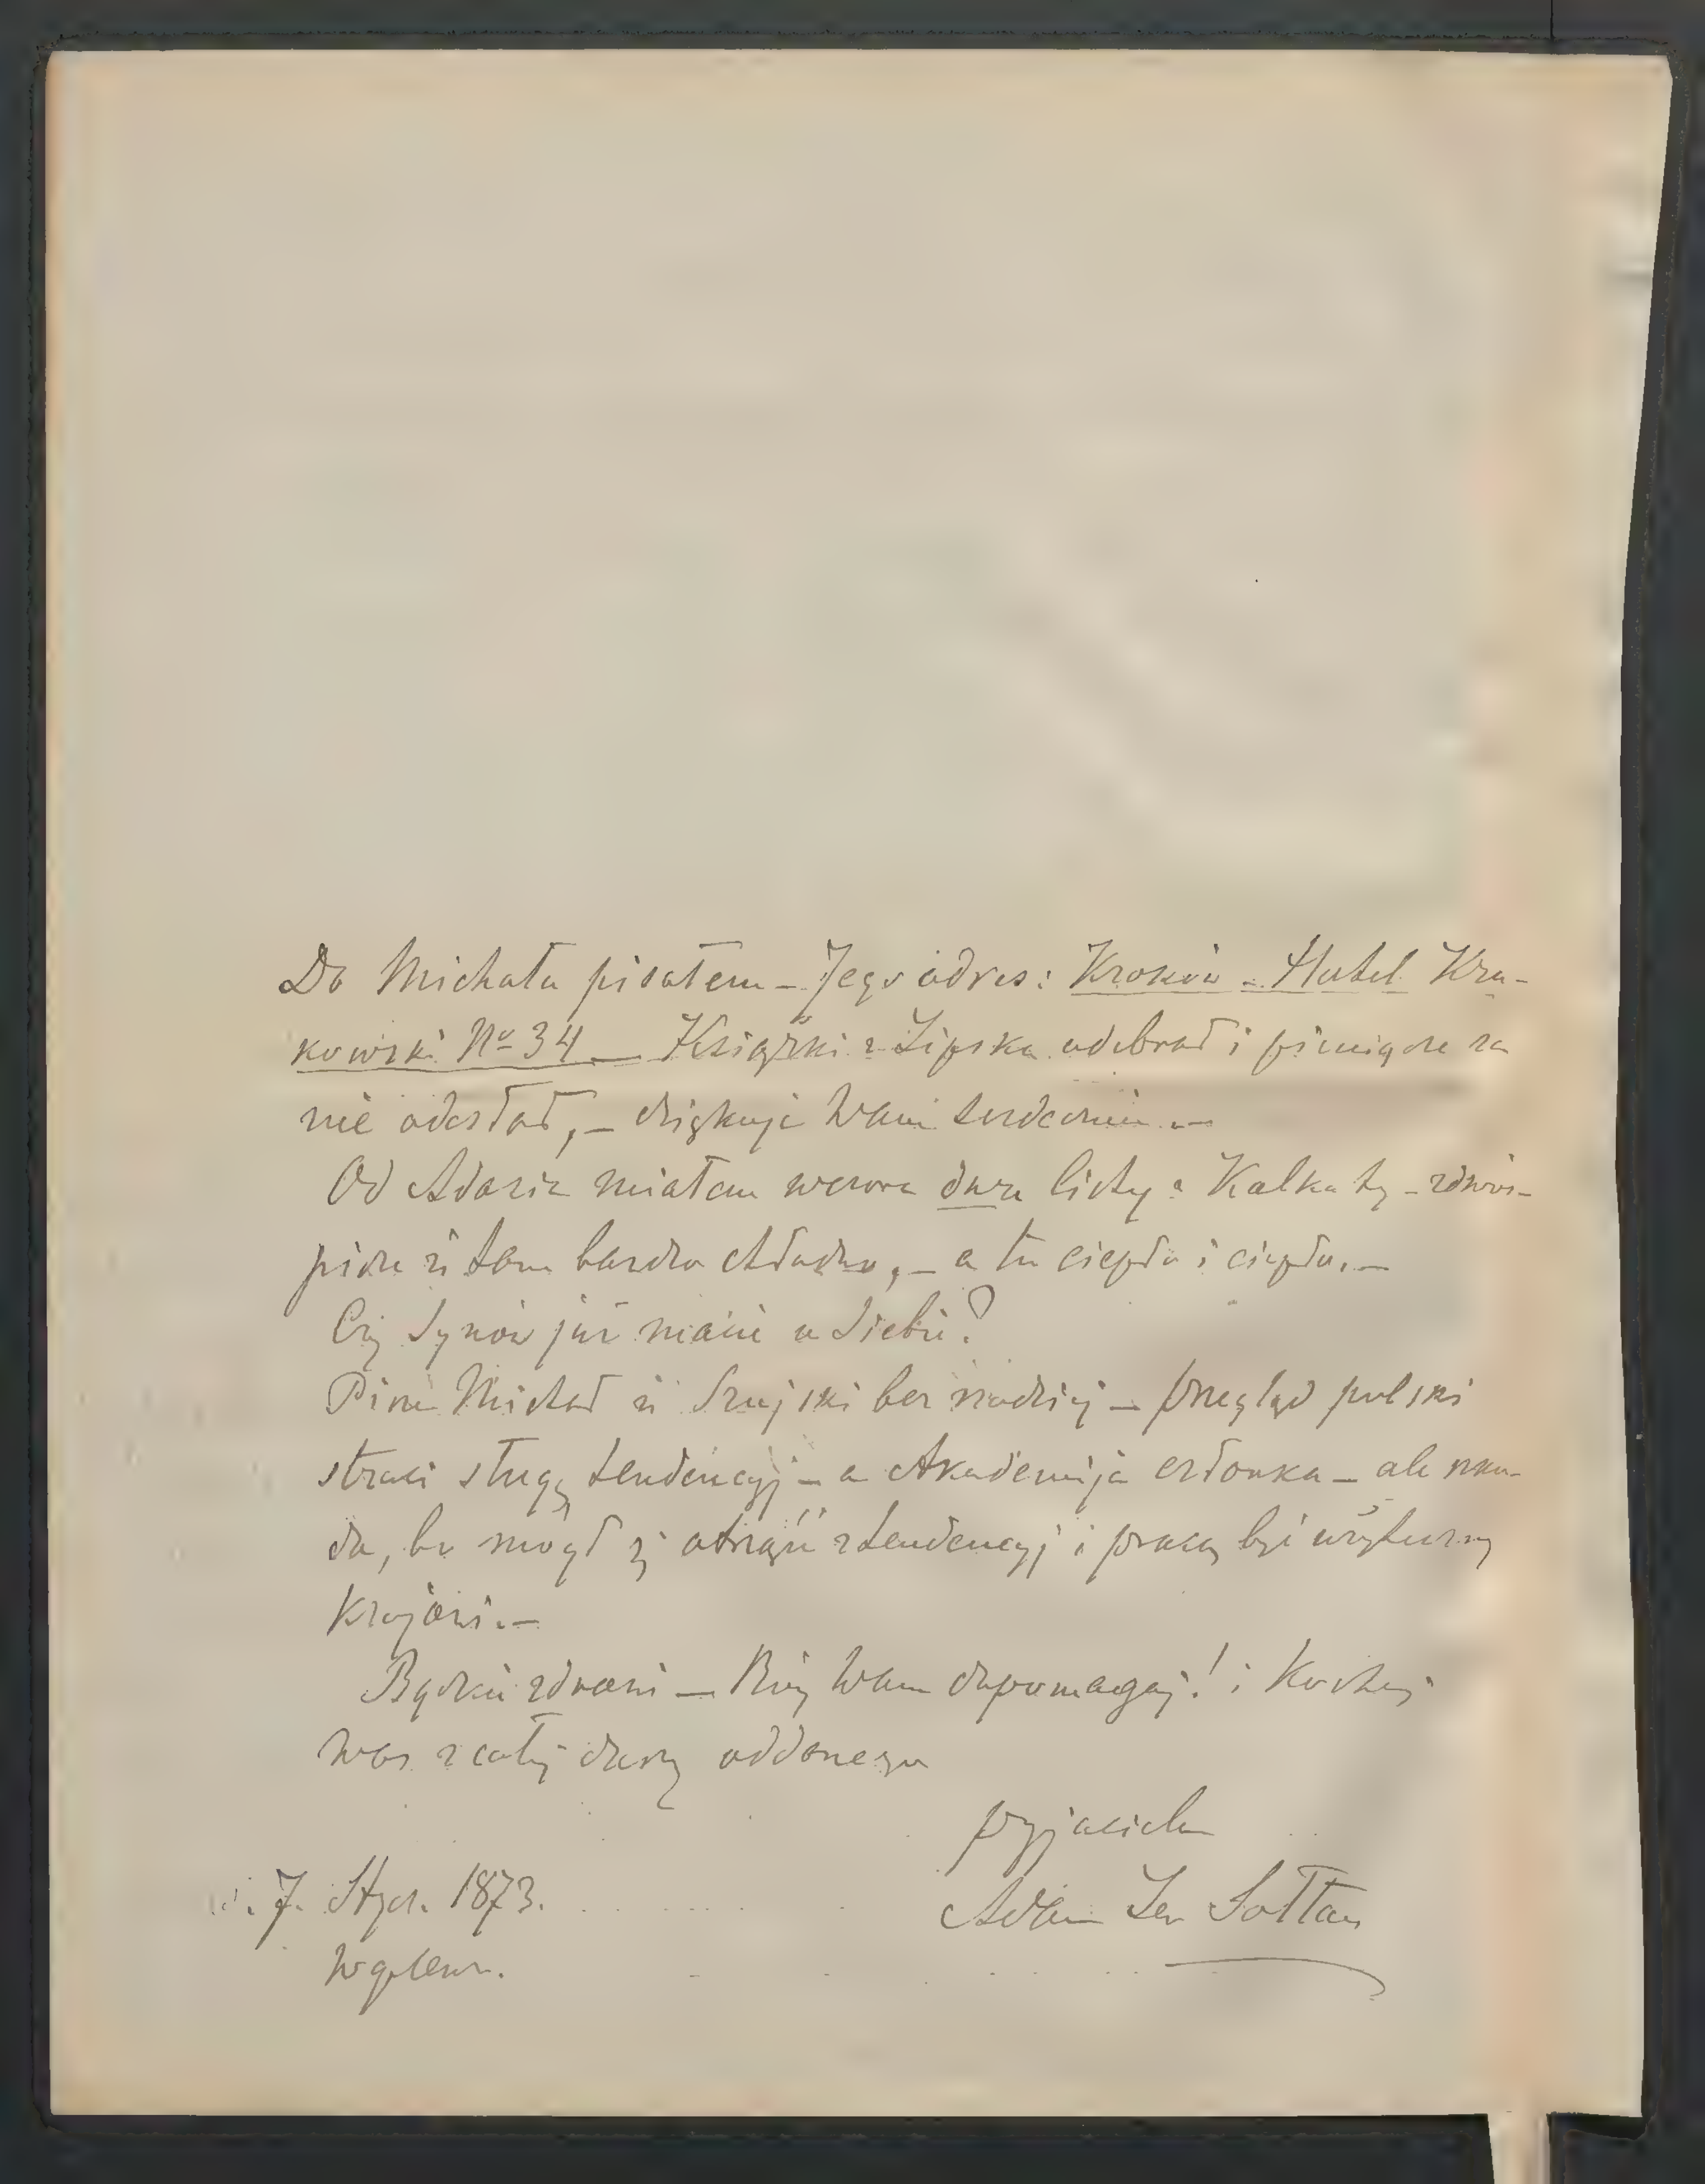 Do Michała pisałem – Jego adres: Kraków – Hotel Kra-
kowski No 34 — Książki z Lipska odebrał i pieniądze za
nie odesłał, – dziękuje Wam serdecznie. –
Od Adasia miałem wczora dwa listy z Kalkuty – zdrów –
pisze iż tam bardzo chłodno, – a tu ciepło i ciepło. –
Czy Synów już macie u Siebie?
Pisze Michał iż Szujski bez nadziei – Przegląd polski
straci sługę tendencyj – a Akademija członka – ale szko-
da, bo mógł się otrząść z tendencyj i pracą być użyteczny
Krajowi. –
Bądźcie zdrowi — Bóg Wam dopomagaj! i Kochaj
Was z całej duszy oddanego
przyjaciela
Adam Lew Sołtan
7. Stycz. 1873.